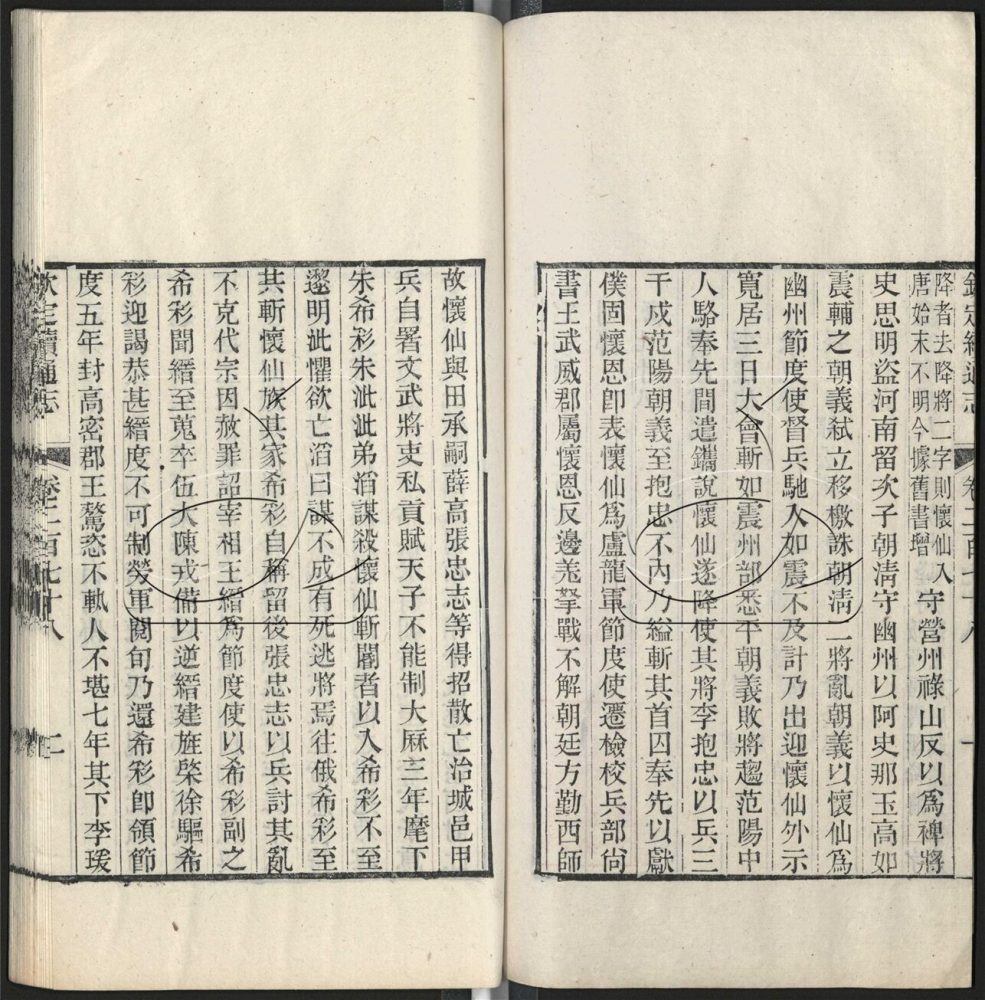 欽定續通志 卷二百七十八 一
降者去降將二字則懷仙入
唐始末不明今據舊書增
守營州祿山反以爲裨將
史思明盜河南留次子朝淸守幽州以阿史那玉高如
震輔之朝義弑立移檄誅朝淸二將亂朝義以懷仙爲
幽州節度使督兵馳入如震不及計乃出迎懷仙外示
寬居三日大會斬如震州部悉平朝義敗將趨范陽中
人駱奉先間遣鐫說懷仙遂降使其將李抱忠以兵三
千戍范陽朝義至抱忠不內乃縊斬其首因奉先以獻
僕固懷恩卽表懷仙爲盧龍軍節度使遷檢校兵部尙
書王武威郡屬懷恩反邊羌挐戰不解朝廷方勤西師
故懷仙與田承嗣薛高張忠志等得招散亡治城邑甲
兵自署文武將吏私貢賦天子不能制大厤三年麾下
朱希彩朱泚泚弟滔謀殺懷仙斬閽者以入希彩不至
遲明泚懼欲亡滔曰謀不成有死逃將焉往俄希彩至
共斬懷仙族其家希彩自稱留後張忠志以兵討其亂
不克代宗因赦罪詔宰相王縉爲節度使以希彩副之
希彩聞縉至蒐卒伍大陳戎備以逆縉建旌棨徐驅希
彩迎謁恭甚縉度不可制勞軍閱旬乃還希彩卽領節
度五年封高密郡王驁恣不軌人不堪七年其下李瑗
欽定續通志 卷二百七十八 二